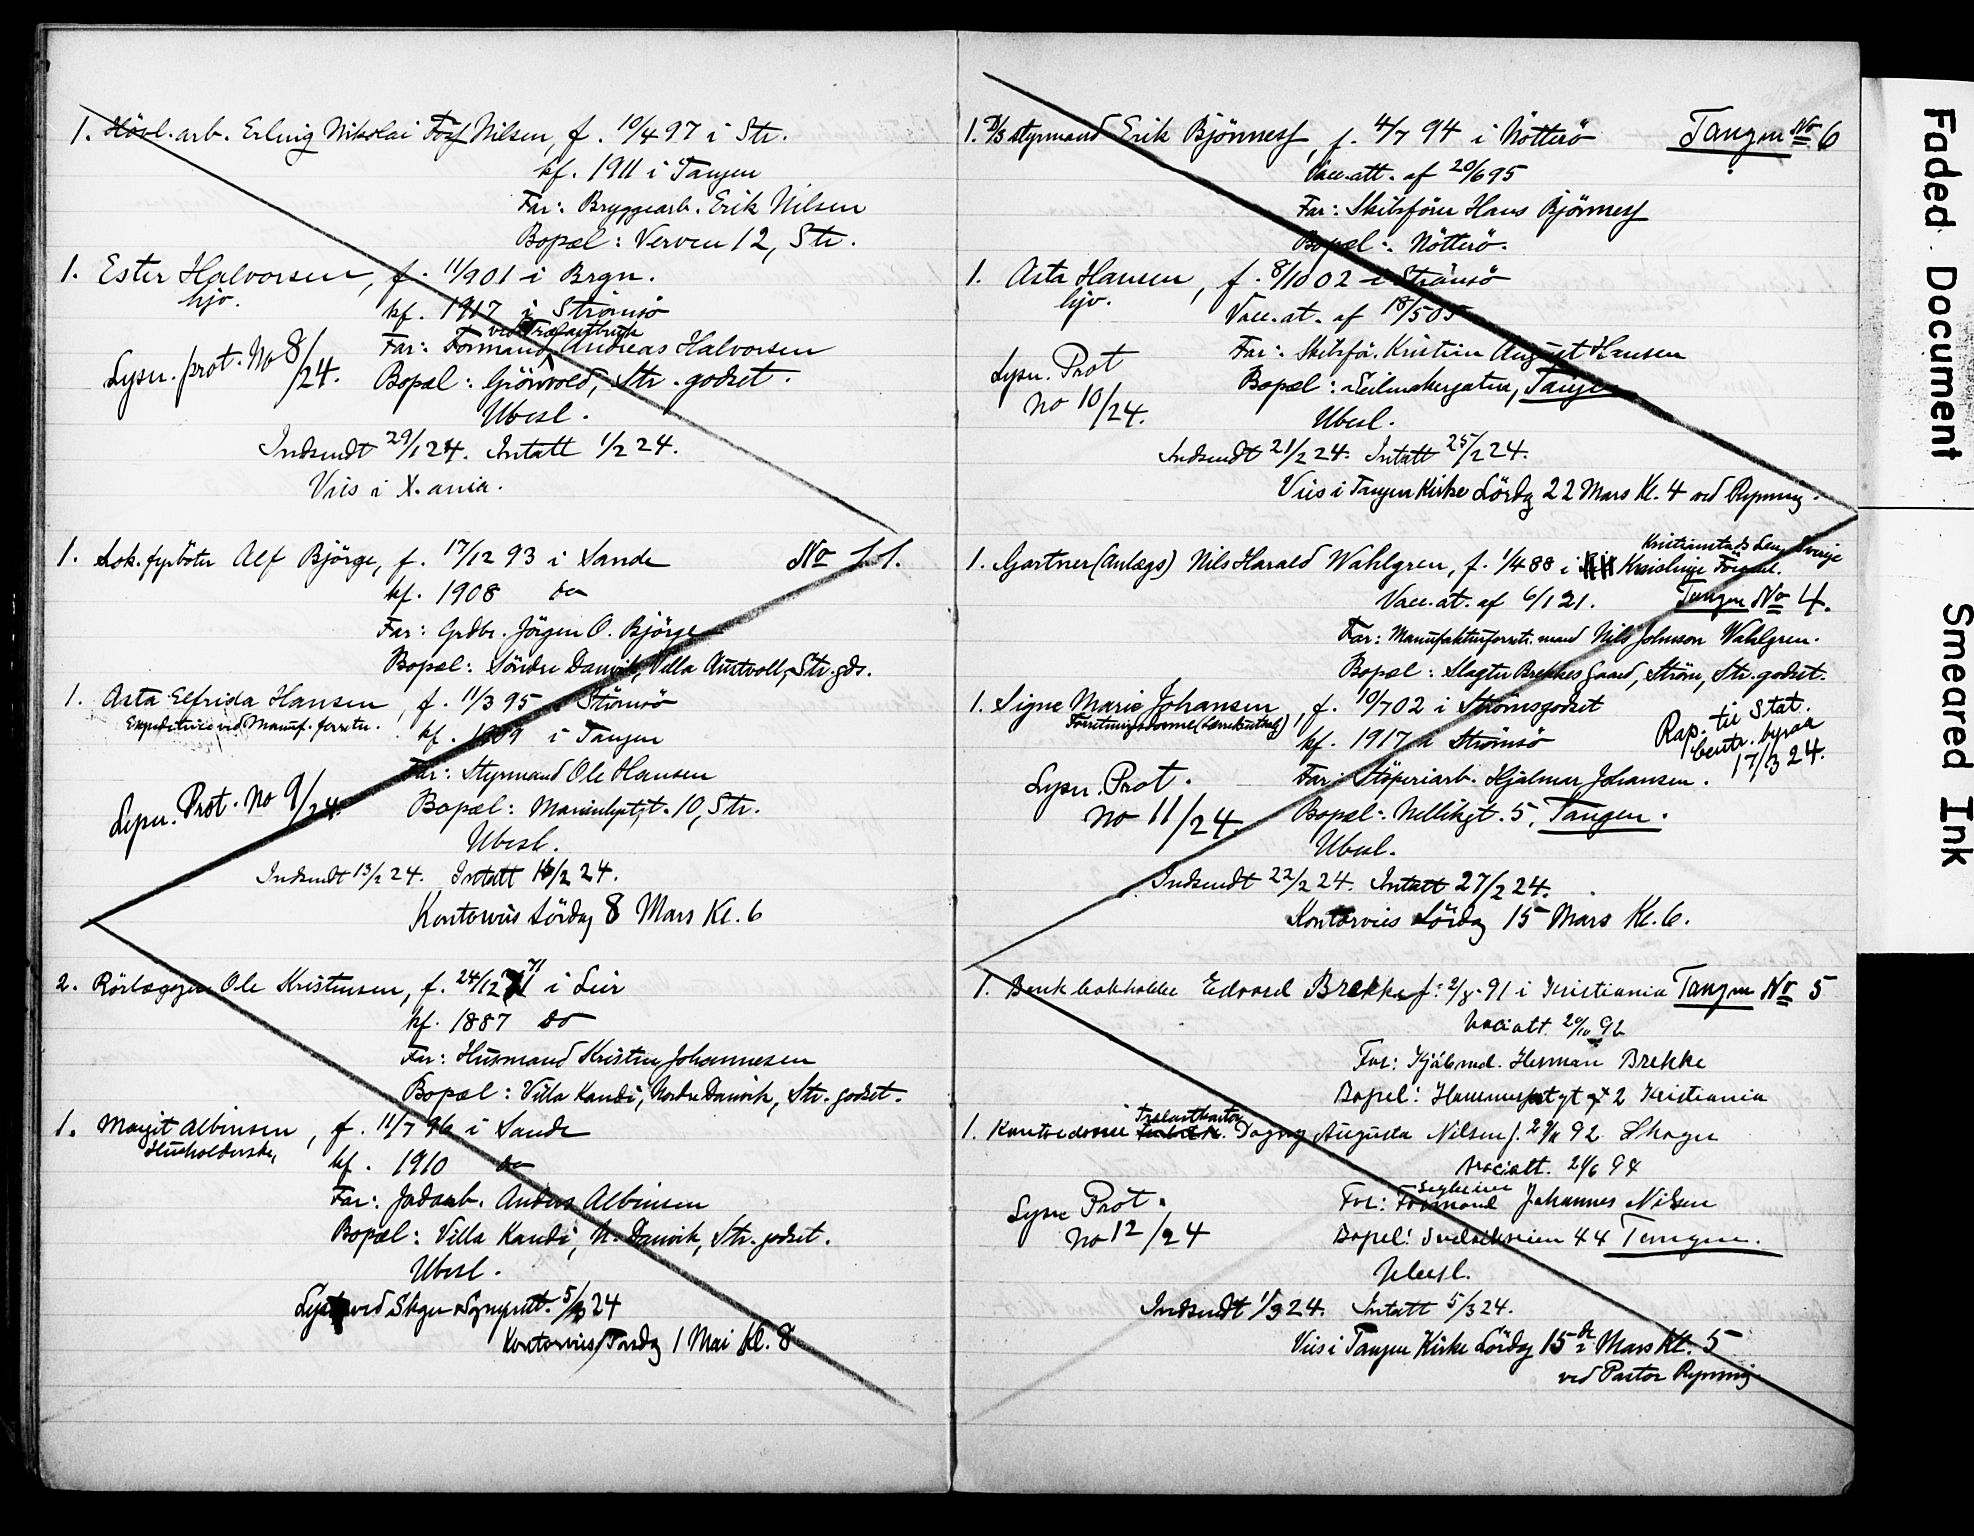 1. Hövl.arb. Erling Nikolai Foss Nilsen, f. 10/4 97 i Str.
kf. 1911 i Tangen
Far: Bryggearb. Erik Nilsen
Bopæl: Verven 12, Str.
1. Ester Halvorsen, f. 11/9 01 i Brgn.
hjv.
kf. 1917 i Strömsö
ved Trælastbruk
Far: Formand Andreas Halvorsen
Lysn. prot. No 8/24.
Bopæl: Grönvold, Str. godset.
Ubesl.
Indsendt 29/1 24. Intatt 1/2 24.
Viis i X.ania.
1. Lok.fyrböter Alf Björge, f. 17/12 93 i Sande No 11.
kf. 1908 do
Far: Grdbr. Jörgen O. Björge
Bopæl: Söndre Danvik, Villa Austvoll, Str. gds.
1. Asta Elfrida Hansen, f. 11/3 95 i Stömsö
Expeditrice ved Manuf. forretn.
kf. 1909 i Tangen
Far: Styrmand Ole Hansen
Lysn. Prot. No 9/24.
Bopæl: Marienlystgt. 10, Str.
Ubesl.
Indsendt 13/2 24. Intatt 16/2 24.
Kontorviis Lördag 8 Mars Kl. 6
2. Rörlægger Ole Kristensen, f. 24/12 71 i Leir
kf. 1887 do
Far: Husmand Kristen Johannesen
Bopæl: Villa Kandi, Nordre Danvik, Str. godset.
1. Margit Albinsen, f. 11/7 96 i Sande
Husholderske,
kf. 1910 do
Far: Jodarb. Anders Albinsen
Bopæl: Villa Kandi, N. Danvik, Str. godset.
Ubesl.
Lyst ved Skger Sogneprt. 5/3 24
Kontorviis Torsdag 1 Mai kl. 8
1. styrmand Erik Björnness, f. 4/7 94 i Nötterö Tangen No 6
Vacc.att. af 20/6 95
Far: Skibsförer Hans Björnness
Bopæl: Nötterö.
1. Asta Hansen, f. 8/10 02 i Strömsö
hjv.
Vacc.at. af 18/5 05
Far: Skibsfö. Kristian August Hansen
Lysn. Prot
No 10/24.
Bopæl: Seilmakergaten, Tangen
Ubesl.
Indsendt 21/2 24. Intatt 25/2 24.
Viis i Tangen Kirke Lördag 22 Mars Kl. 4 ved Rynning.
Kristianstads Len, Sverige
1. Gartner (Anlægs) Nils Harald Wahlgren, f. 1/4 88 i
Vacc.at. af 6/1 21. Tangen No 4.
Far: Manufakturforretn. mand Nils Johnson Wahlgren.
Bopæl: Slagter Brekkes Gaard, Ström, Str. godset.
1. Signe Marie Johansen, f. 10/7 02 i Strömsgodset
kf. 1917 i Strömsö
Rap. til Stat.
centr. byraa
17/3 24.
Far: Stöperiarb. Hjalmar Johansen.
Lysn. Prot.
No 11/24.
Bopæl: Nellikgt. 5, Tangen.
Ubesl.
Indsendt 22/2 24. Intatt 27/2 24.
Kontorviis Lördag 15 Mars Kl. 6.
1. Bankbokholder Edvard Brekke f. 2/8 91 i Kristiania Tangen No 5
Vacciatt 20/10 92
Far: Kjöbmd. Herman Brekke
Bopel: 2 Kristiania
Trælastkontor
1. Kontordame Dagny Augusta Nilsen f. 29/11 92 Skoger
Vacciatt. 21/6 94
Far: Formand Johannes Nilsen
Lysn Prot.
No 12/24
Bopel: Svelvikveien 44 Tangen.
Ubesl.
Indsendt 1/3 24. Intatt 5/3 24.
Viis i Tangen Kirke Lördag 15de Mars Kl. 5
ved Pastor Rynning
Faded Document
Smeared Ink